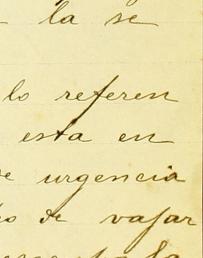 la se
lo referen
esta en
de urgencia
de vajar